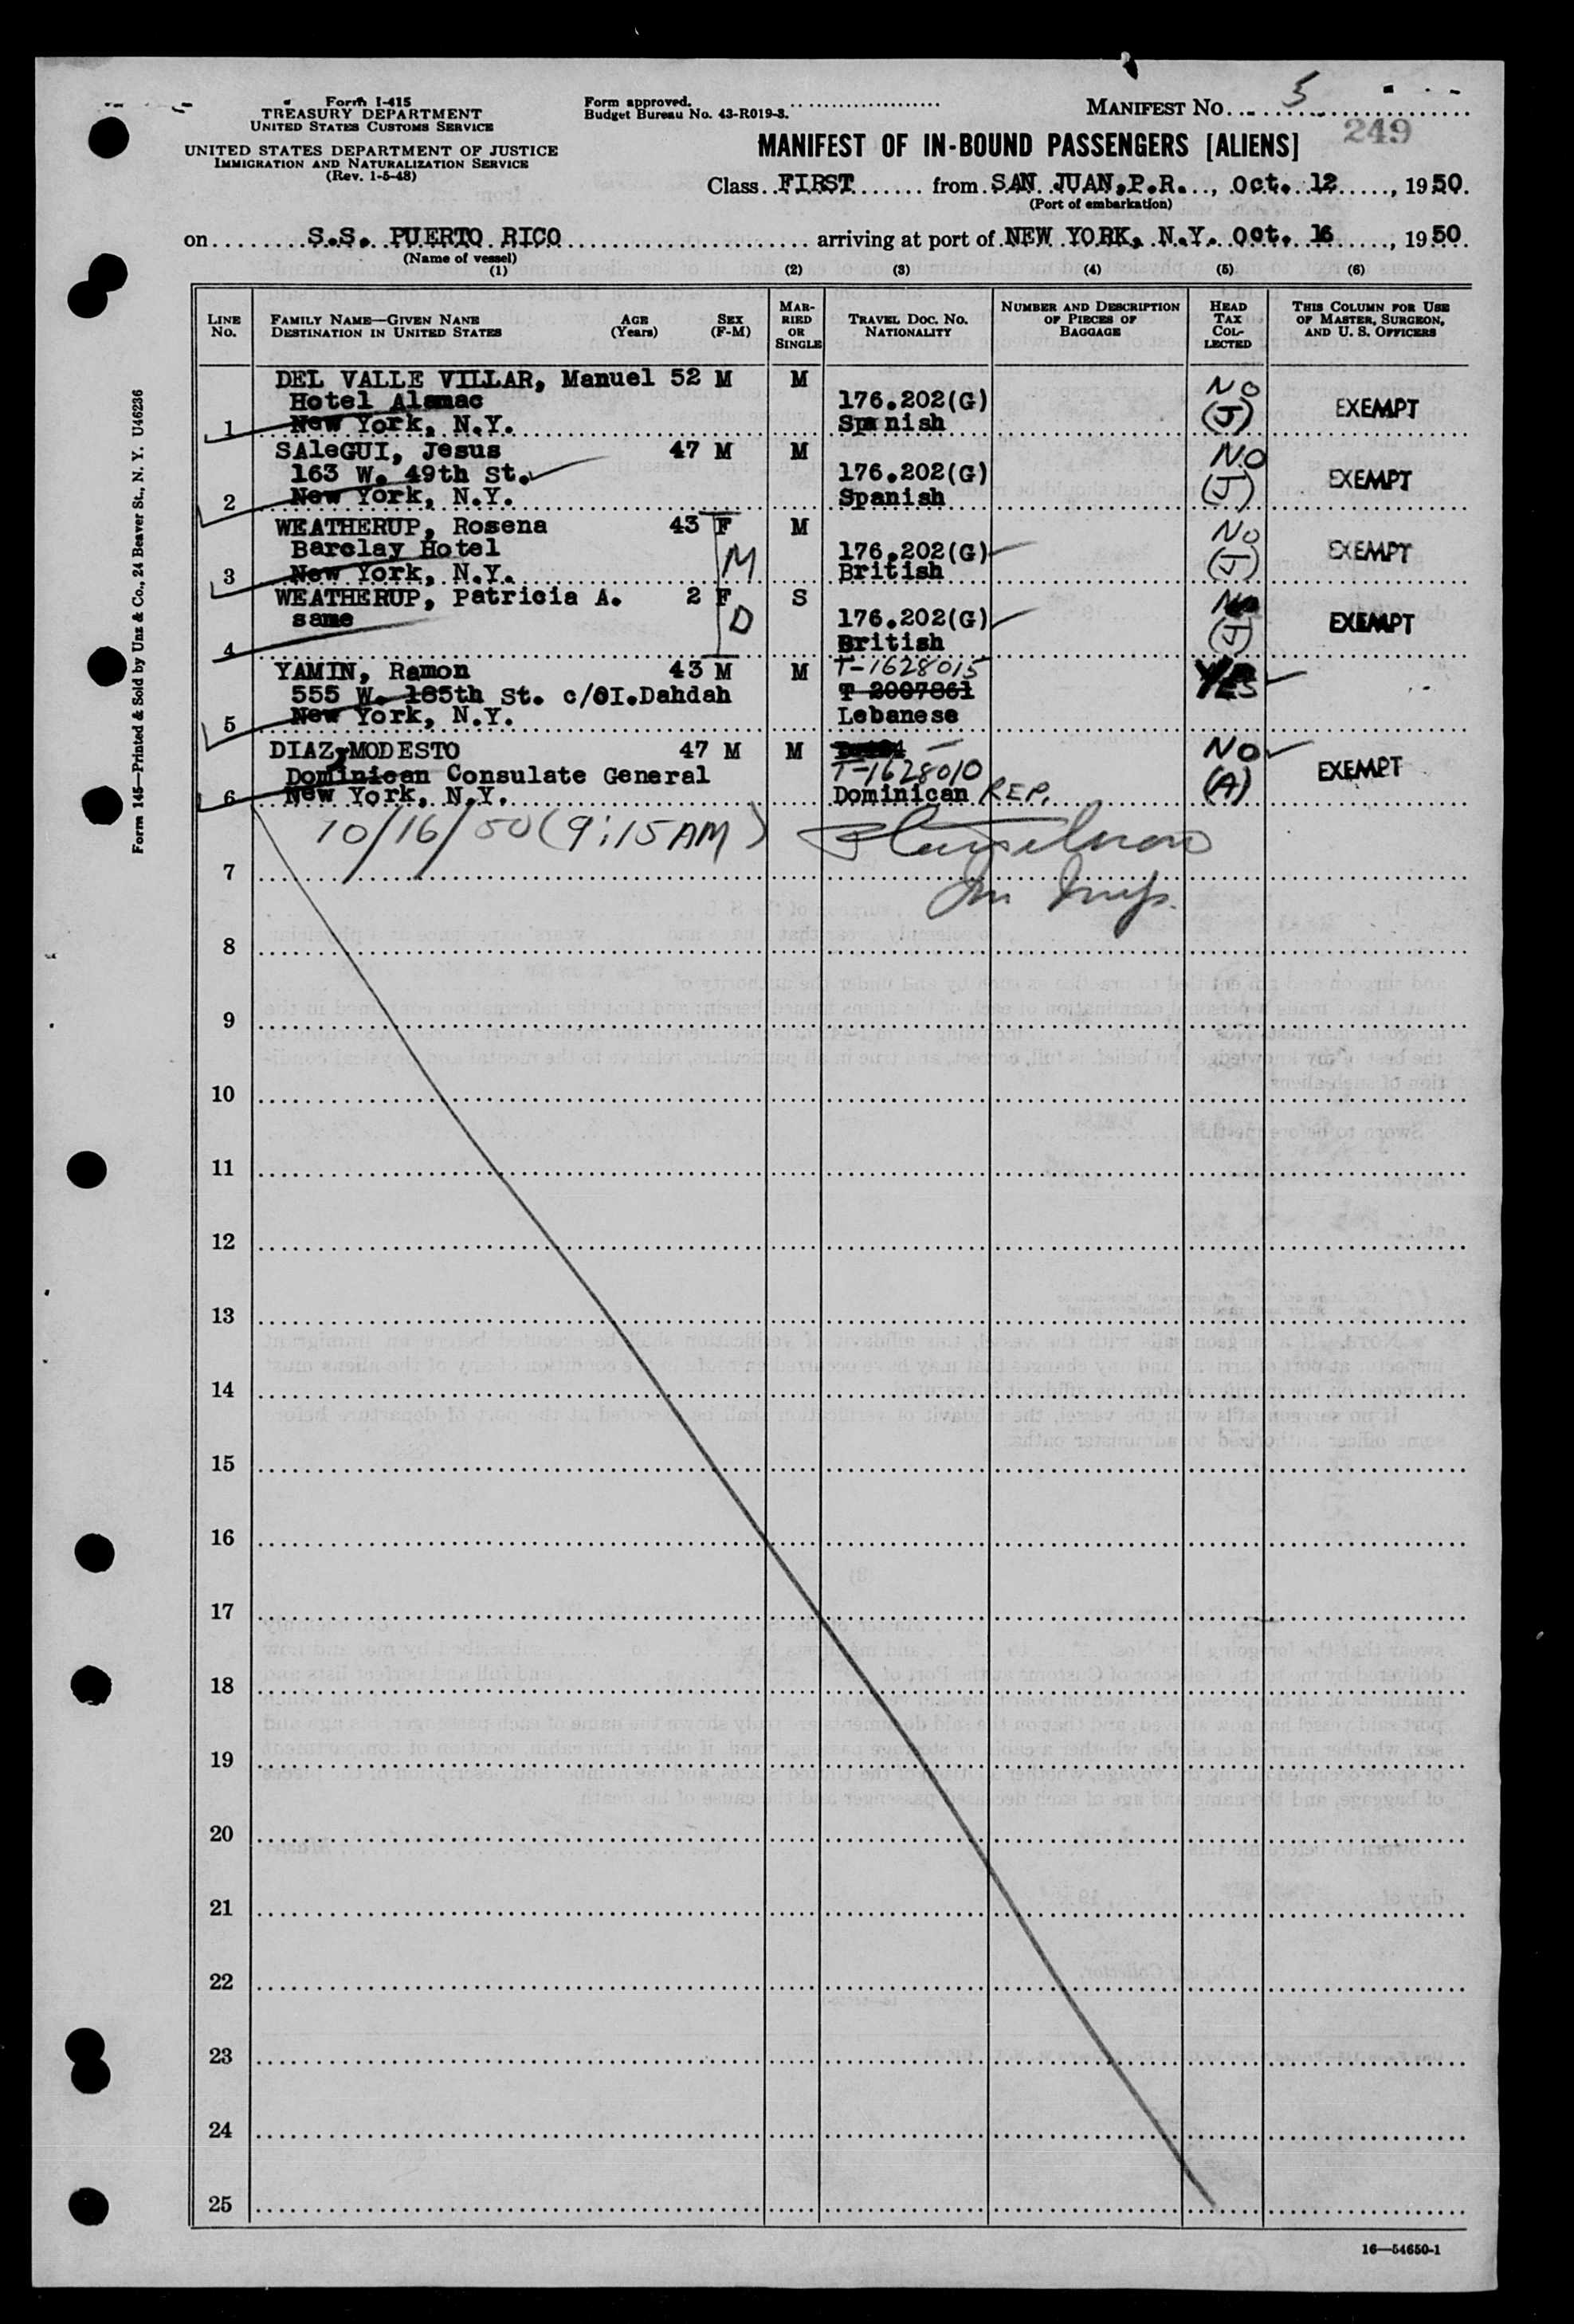 Form I-415
TREASURY DEPARTMENT
UNITED STATES CUSTOMS SERVICE
UNITED STATES DEPARTMENT OF JUSTICE
IMMIGRATION AND NATURALIZATION SERVICE
(Rev. 1-5-48)
Form approved.
Budget Bureau No. 43-R019-3.
MANIFEST NO. 5
249
MANIFEST OF IN-BOUND PASSENGERS [ALIENS]
Class FIRST from SAN JUAN, P.R., Oct. 12, 1950.
(Port of embarkation)
on S.S. PUERTO RICO arriving at port of NEW YORK, N.Y. Oct. 16, 1950.
(Name of vessel)
(1) (2) (3) (4) (5) (6)
LINE No. FAMILY NAME—GIVEN NAME DESTINATION IN UNITED STATES AGE (Years) SEX (F-M) MARRIED OR SINGLE TRAVEL DOC. NO. NATIONALITY NUMBER AND DESCRIPTION OF PIECES OF BAGGAGE HEAD TAX COLLECTED THIS COLUMN FOR USE OF MASTER, SURGEON, AND U. S. OFFICERS
DEL VALLE VILLAR, Manuel 52 M M NO
Hotel Alamac 176.202(G) EXEMPT
1 New York, N.Y. Spanish (J)
SAleGUI, Jesus 47 M M NO
163 W. 49th St. 176.202(G) EXEMPT
2 New York, N.Y. Spanish (J)
WEATHERUP, Rosena 43 F M NO
Barclay Hotel M 176.202(G) EXEMPT
3 New York, N.Y. British (J)
WEATHERUP, Patricia A. 2 F S No
same D 176.202(G) EXEMPT
4 British (J)
YAMIN, Ramon 43 M M T-1628015 YES
555 W. 185th St. c/o I.Dahdah T 2007861
5 New York, N.Y. Lebanese
DIAZ, MODESTO 47 M M NO
Dominican Consulate General T-1628010 EXEMPT
6 New York, N.Y. Dominican REP. (A)
10/16/50 (9:15 AM)
7 Im Insp.
8
9
10
11
12
13
14
15
16
17
18
19
20
21
22
23
24
25
16—54650-1
Form 145—Printed & Sold by Unz & Co., 24 Beaver St., N. Y. U46236